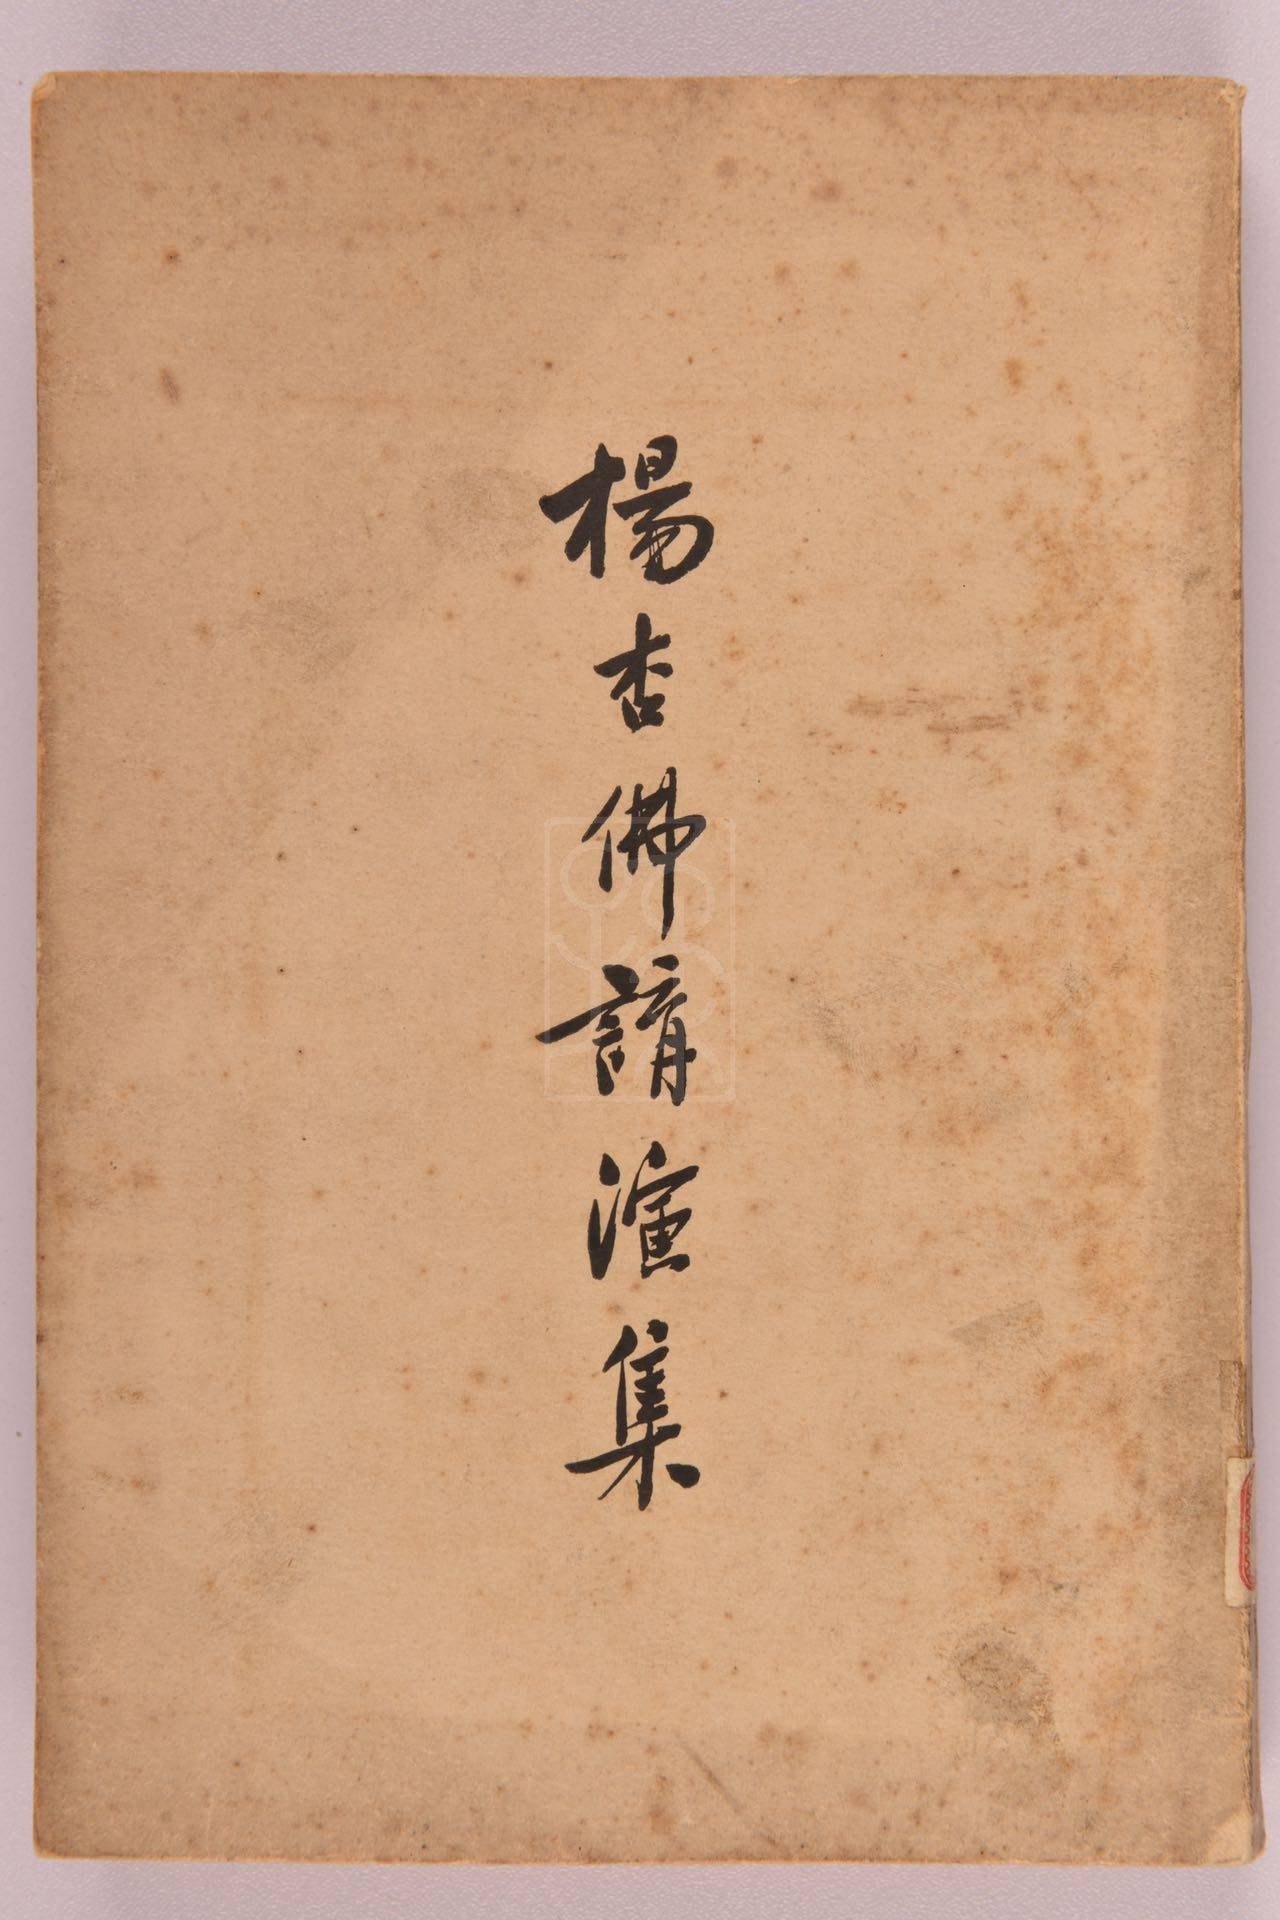 楊杏佛講演集